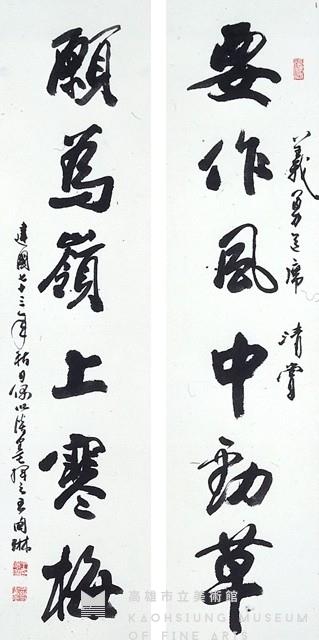 要作風中勁草
義勇道席 清賞
願為嶺上寒梅
建國七十三年
高雄市立美術館
KAOHSIUNG MUSEUM
OF FINE ARTS